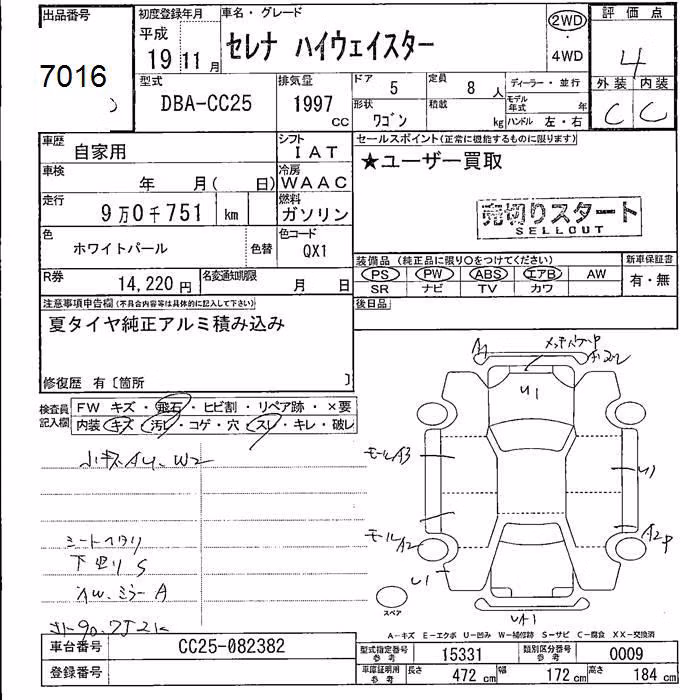 出品番号
7016
初度登録年月
平成
19 11 月
車名・グレード
セレナ ハイウェイスター
2WD
・
4WD
評価点
4
外装 内装
C C
型式
DBA-CC25
排気量
1997
CC
ドア
5
定員
8 人
形状
ワゴン
積載
kg
ディーラー・並行
モデル年式
年
ハンドル 左・右
車歴
自家用
シフト
IAT
車検
年 月( 日)
冷房
WAAC
走行
9万0千751 km
燃料
ガソリン
色
ホワイトパール
色替
色コード
QX1
R券
14,220 円
名変通知期限
月 日
セールスポイント(正常に機能するものに限ります)
★ユーザー買取
売切りスタート
SELLOUT
装備品(純正品に限り○をつけてください)
PS PW ABS エアB AW
SR ナビ TV カワ
新車保証書
有・無
後日品
注意事項申告欄(不具合内容等は具体的に記入して下さい)
夏タイヤ純正アルミ積み込み
修復歴 有〔箇所 〕
検査員
記入欄
FW キズ・飛石・ヒビ割・リペア跡・×要
内装 キズ・汚レ・コゲ・穴・スレ・キレ・破レ
小キズAU、W2
シートヘタリ
下回りS
AW、ミラーA
A1
U1
モールA3
U1
モールA2
A2P
U1
UA1
スペア
A-キズ E-エクボ U-凹み W-補修跡 S-サビ C-腐食 XX-交換済
車台番号
CC25-082382
登録番号
型式指定番号
参考
15331
類別区分番号
参考
0009
車庫証明用
参考
長さ
472 cm
幅
172 cm
高さ
184 cm